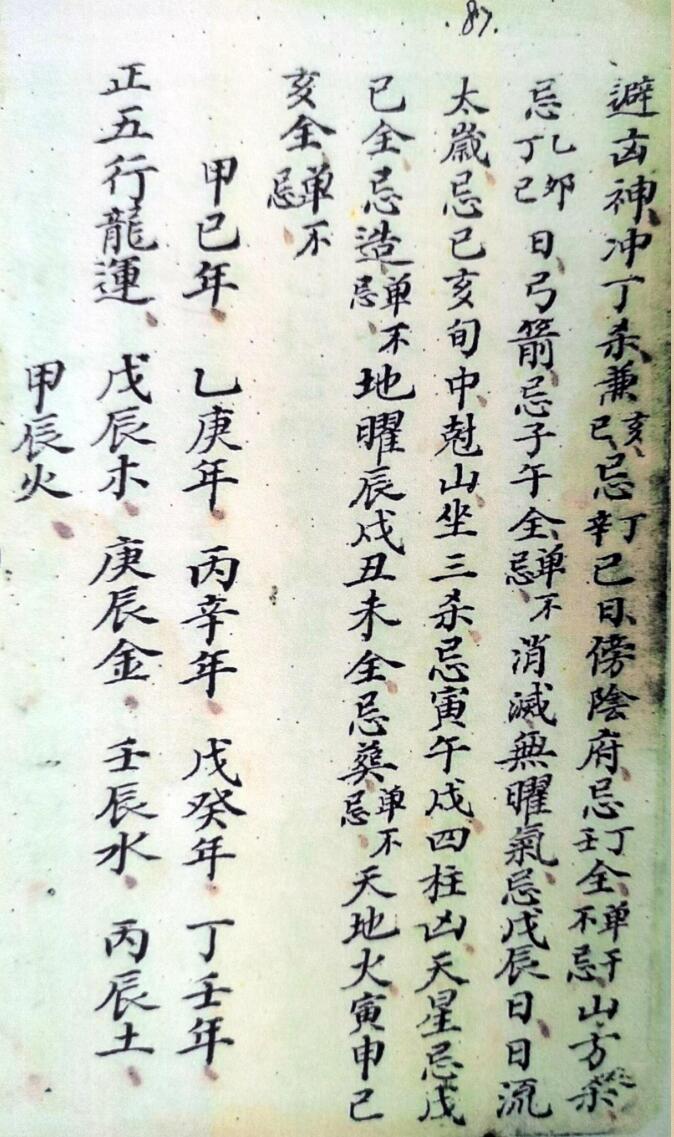 87.
避凶神冲丁杀兼亥巳忌丁辛巳日傍陰府忌丁壬全单干不忌山方杀
忌乙卯丁巳日弓箭忌子午全单不忌消滅無曜氣忌戊辰日日流
太歲忌己亥旬中尅山坐三杀忌寅午戌四柱凶天星忌戊
巳全忌造单不忌地曜辰戌丑未全忌葬单不忌天地火寅申巳
亥全单不忌
甲己年乙庚年丙辛年戊癸年丁壬年
正五行龍運戊辰木庚辰金壬辰水丙辰土
甲辰火